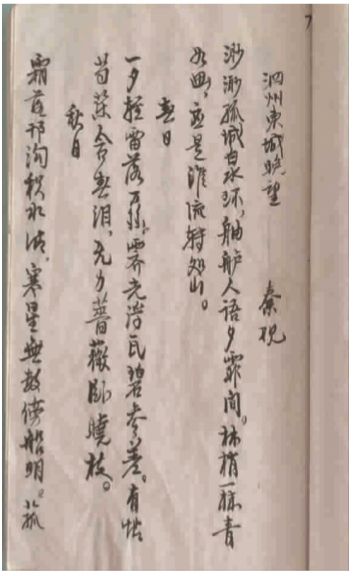 7
泗州東城晚望 秦观
渺渺孤城白水环,舳舻人语夕霏间。林梢一抹青
如画,应是淮流转处山。
春日
一夕轻雷落万丝,霁光浮瓦碧参差。有情
芍药含春泪,无力蔷薇卧晓枝。
秋日
霜落邗沟积水清,寒星無数傍船明。菰